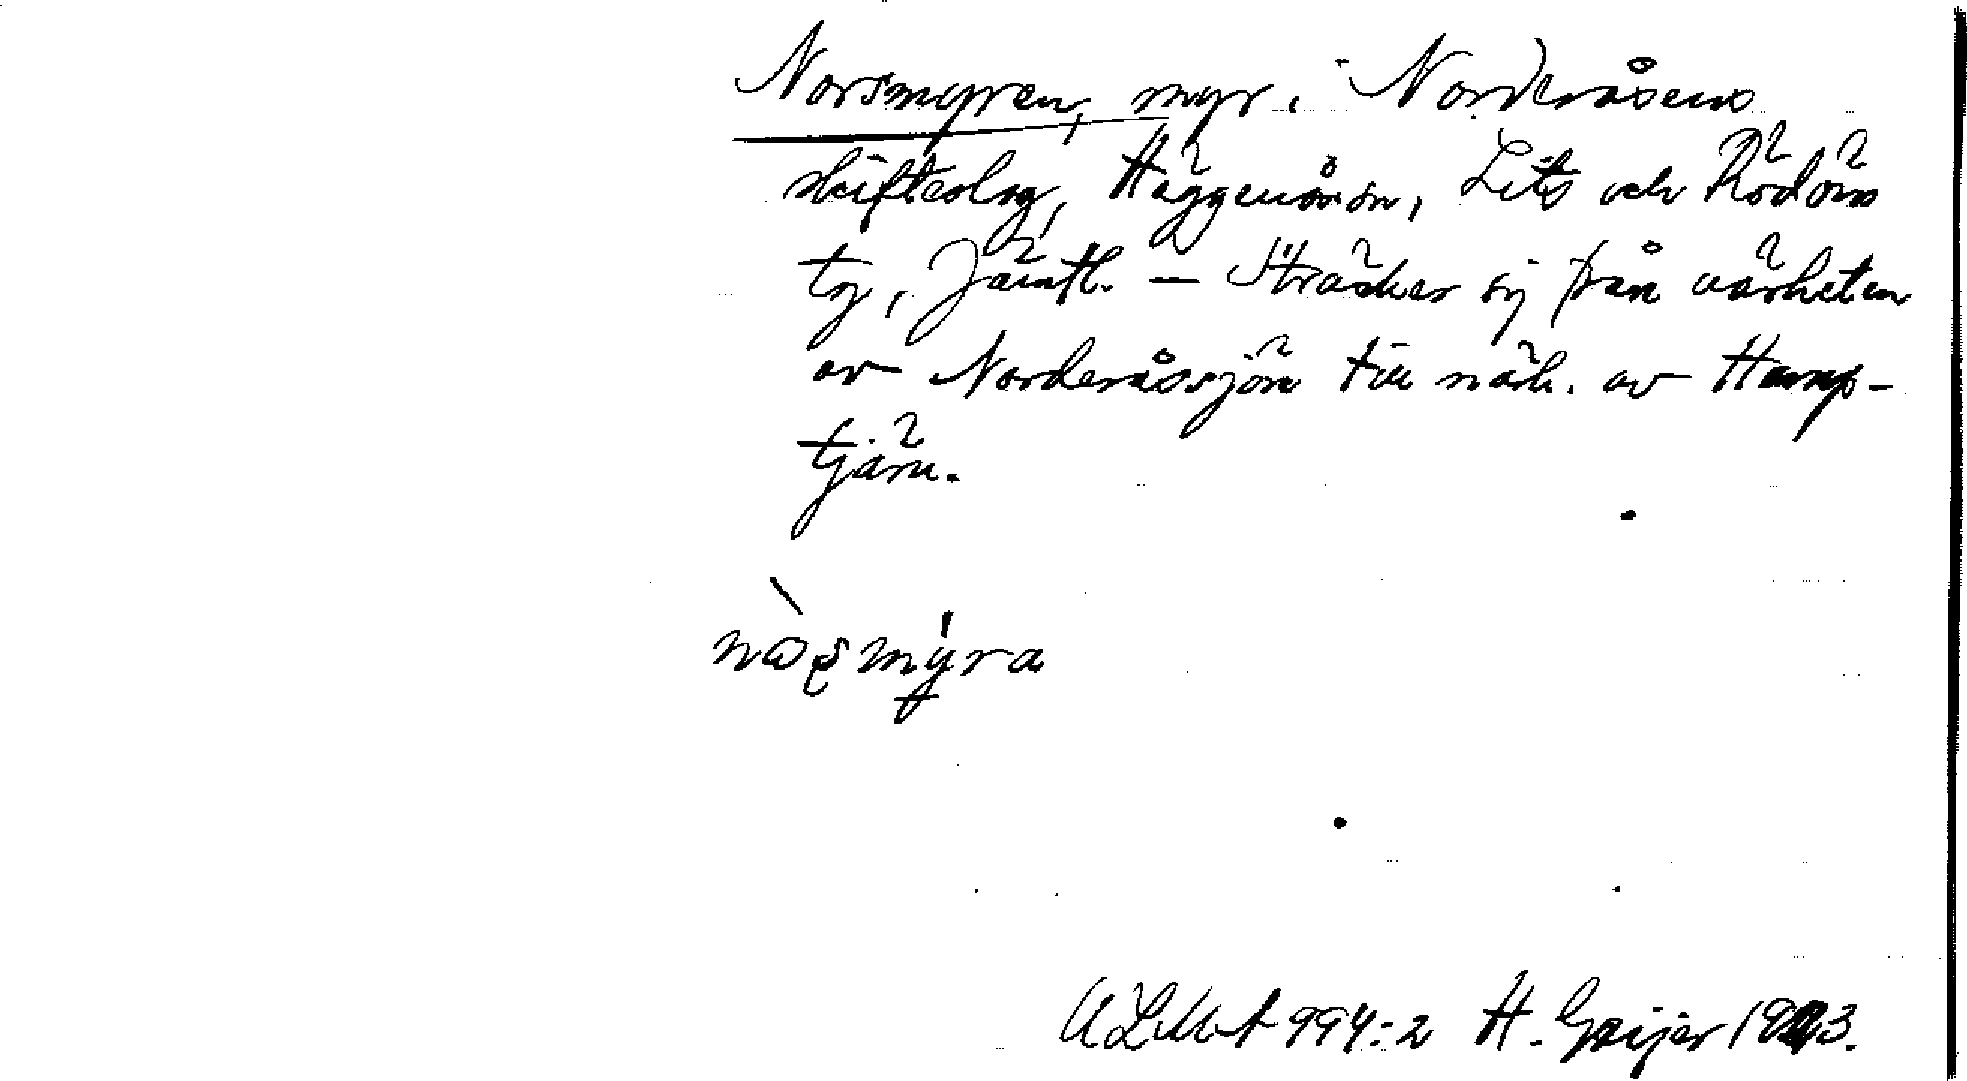 Norsmyren, myr i Norderåsens
skifteslag, Häggenås sn, Lits och Rödöns
tg, Jämtl. — Sträcker sig från närheten
av Norderåssjön till närh. av Hamp-
tjärn.
ULMA 994:2 H. Geijer 1923.